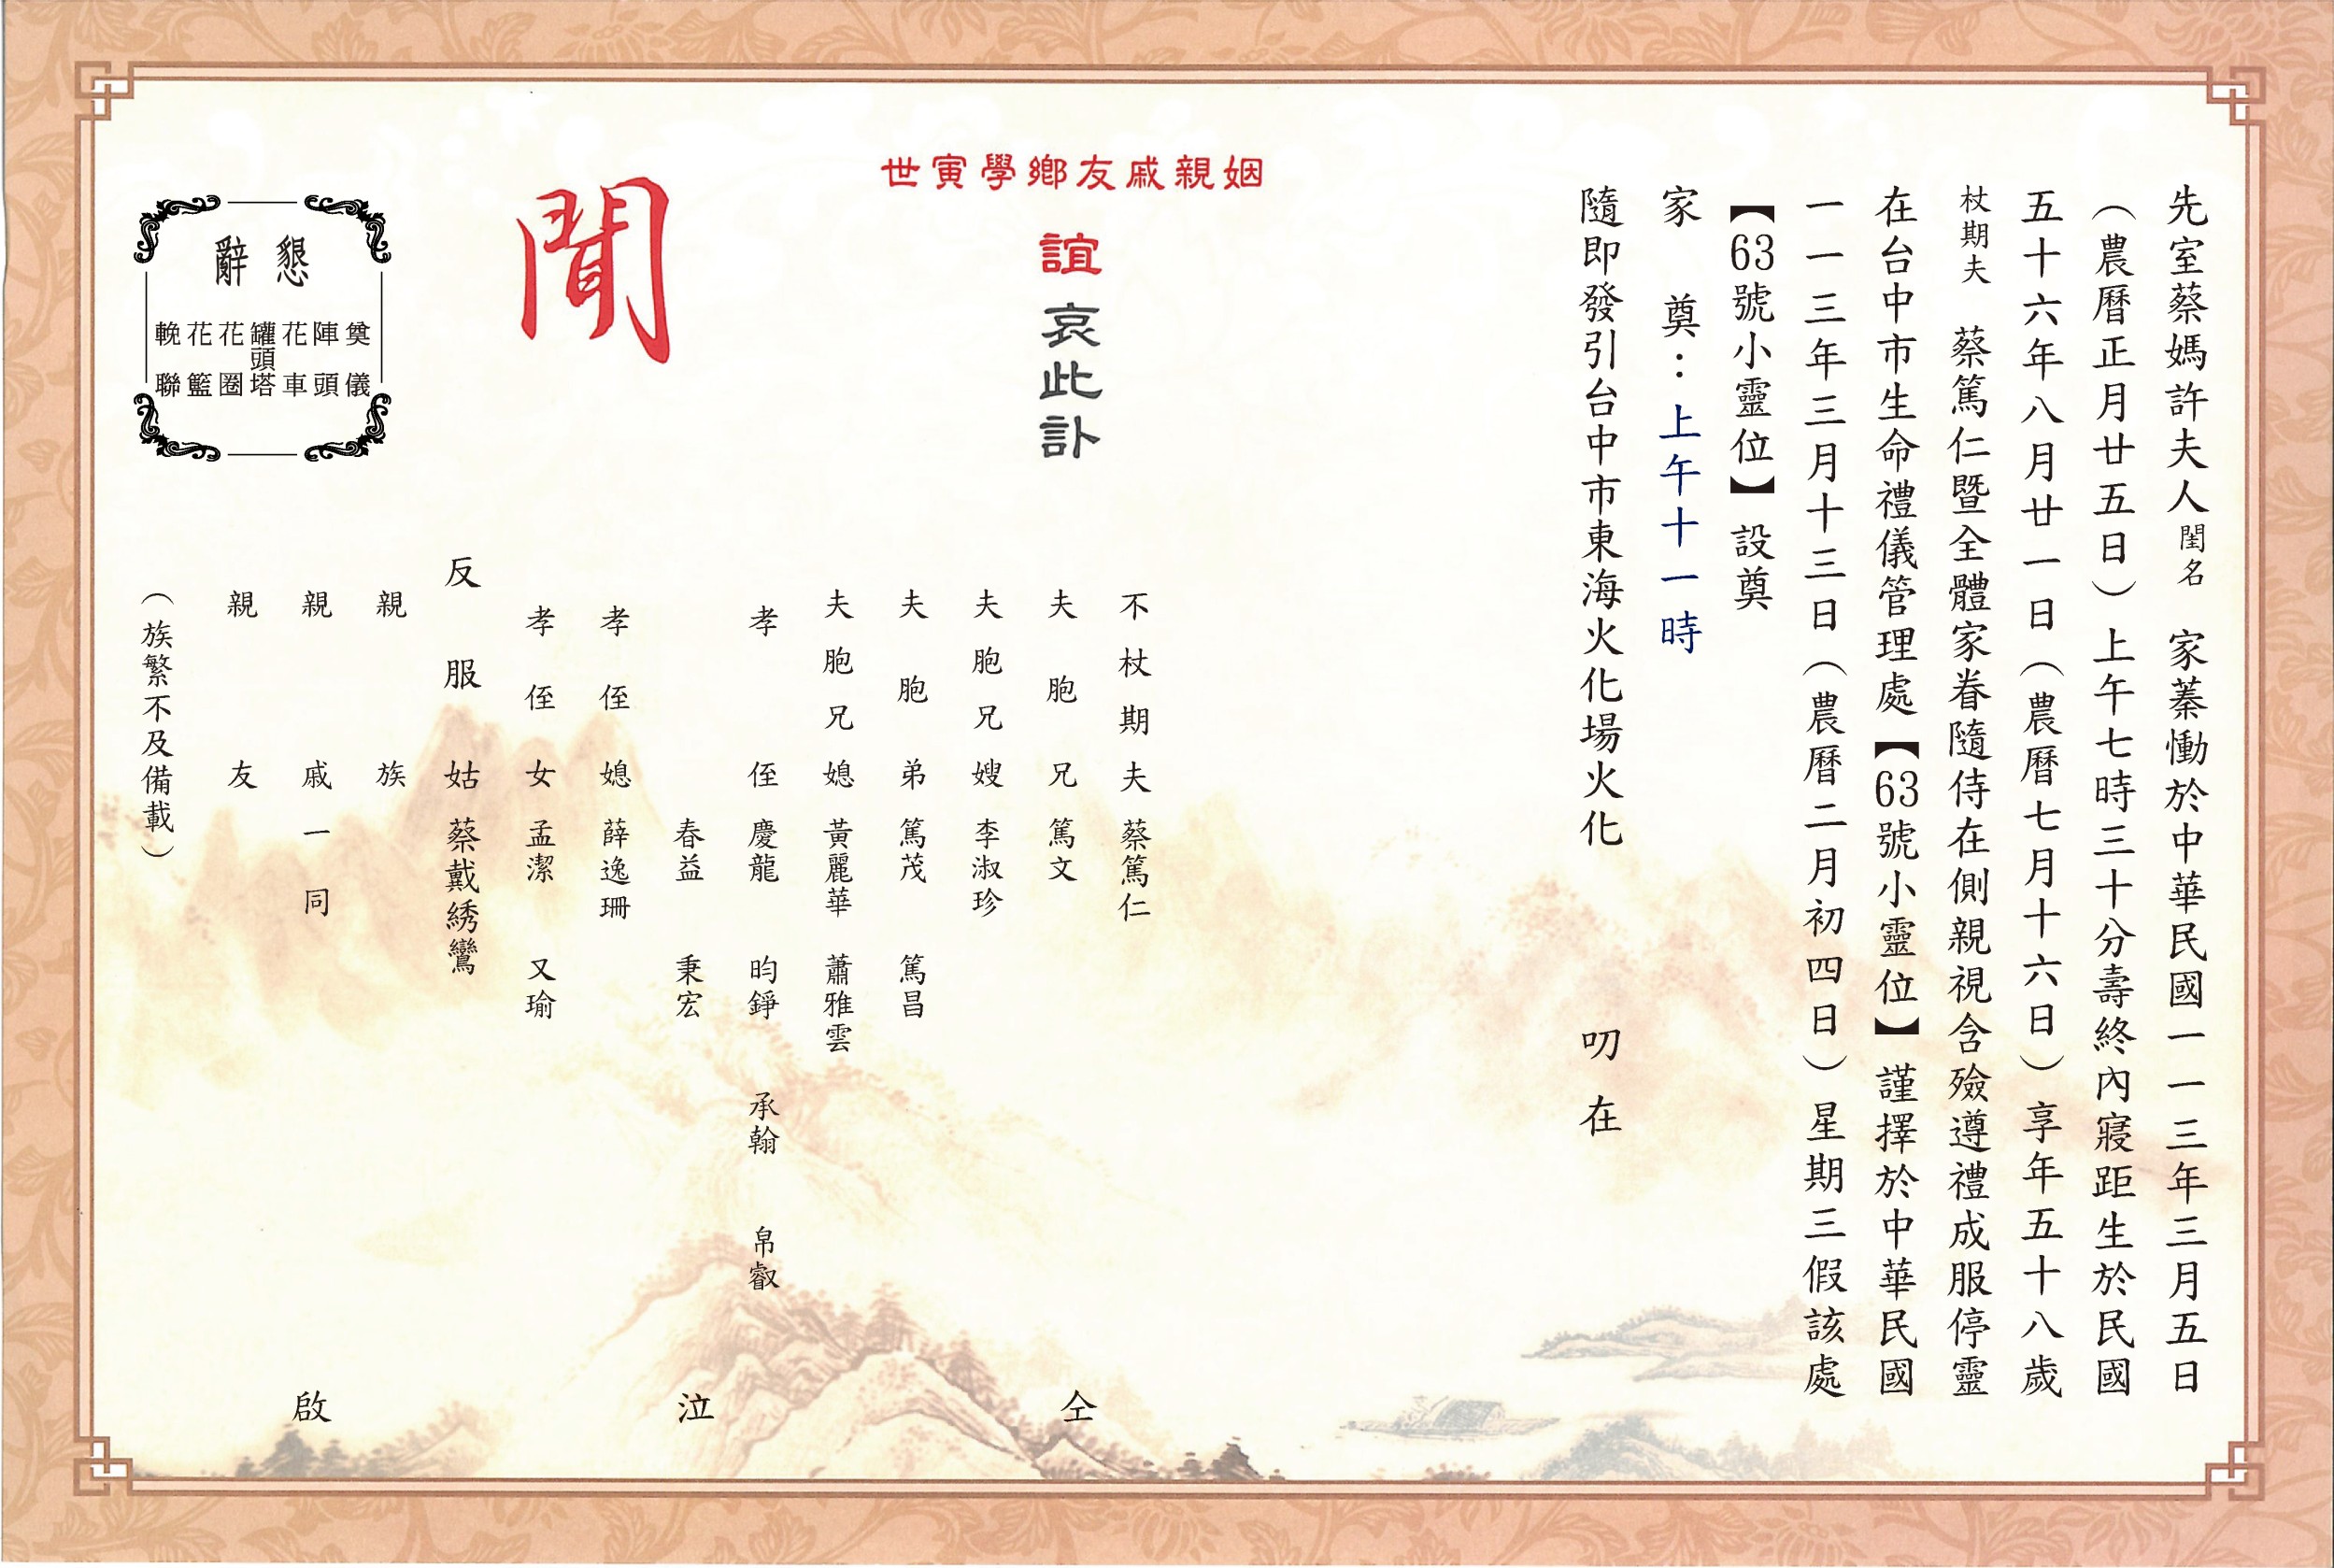 先室蔡媽許夫人閨名 家蓁慟於中華民國一一三年三月五日
（農曆正月廿五日）上午七時三十分壽終內寢距生於民國
五十六年八月廿一日（農曆七月十六日）享年五十八歲
杖期夫 蔡篤仁暨全體家眷隨侍在側親視含殮遵禮成服停靈
在台中市生命禮儀管理處【63號小靈位】謹擇於中華民國
一一三年三月十三日（農曆二月初四日）星期三假該處
【63號小靈位】設奠
家 奠：上午十一時
隨即發引台中市東海火化場火化 叨在
世寅學鄉友戚親姻
誼 哀此訃
聞
不杖期夫 蔡篤仁
夫胞兄 篤文
夫胞兄嫂 李淑珍
夫胞弟 篤茂 篤昌
夫胞兄媳 黃麗華 蕭雅雲
孝侄 慶龍 昀錚 承翰 帛叡
春益 秉宏
孝侄媳 薛逸珊
孝侄女 孟潔 又瑜
反服姑 蔡戴綉鸞
親族
親戚一同
親友
（族繁不及備載）
仝 泣 啟
懇辭
奠儀
陣頭
花車
罐頭塔
花圈
花籃
輓聯